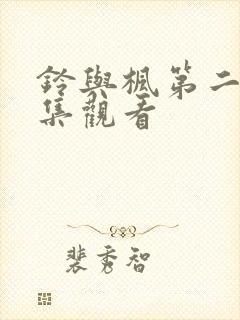 鈴與楓第二
集觀看
裴秀智